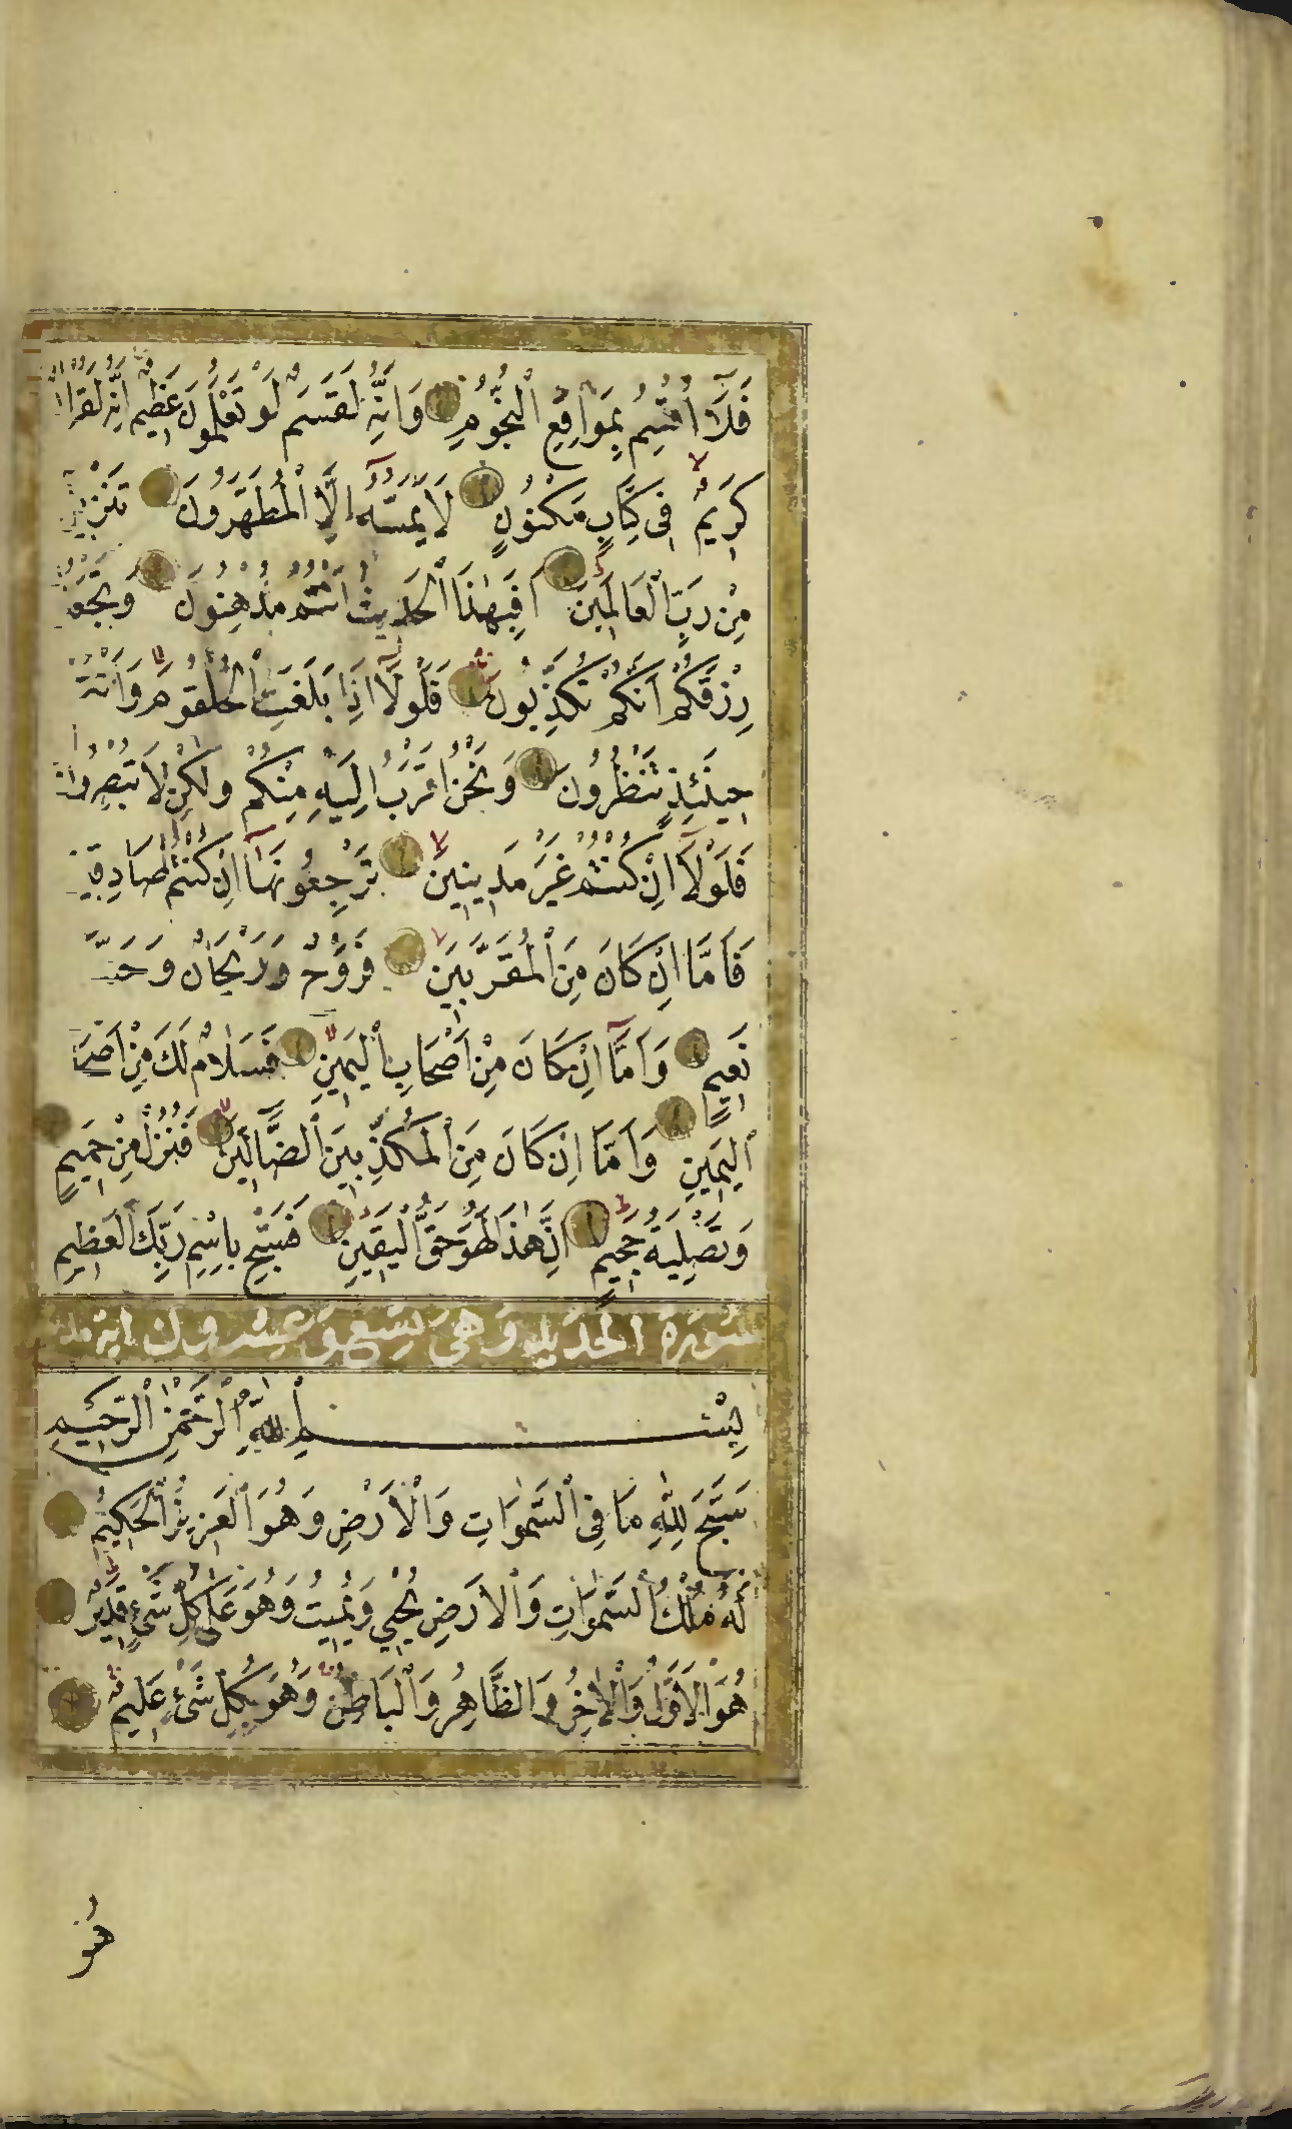 فَلَآ اُقْسِمُ بِمَوَاقِعِ ٱلنُّجُومِ وَاِنَّهُ لَقَسَمٌ لَوْ تَعْلَمُونَ عَظِيمٌ اِنَّهُ لَقُرْاٰنٌ
كَرِيمٌ فِى كِتَابٍ مَكْنُونٍ لَا يَمَسُّهُٓ اِلَّا ٱلْمُطَهَّرُونَ تَنْزِيلٌ
مِنْ رَبِّ ٱلْعَالَمِينَ اَفَبِهٰذَا ٱلْحَدِيثِ اَنْتُمْ مُدْهِنُونَ وَتَجْعَلُونَ
رِزْقَكُمْ اَنَّكُمْ تُكَذِّبُونَ فَلَوْلَآ اِذَا بَلَغَتِ ٱلْحُلْقُومَ وَاَنْتُمْ
حِينَئِذٍ تَنْظُرُونَ وَنَحْنُ اَقْرَبُ اِلَيْهِ مِنْكُمْ وَلٰكِنْ لَا تُبْصِرُونَ
فَلَوْلَآ اِنْ كُنْتُمْ غَيْرَ مَدِينِينَ تَرْجِعُونَهَآ اِنْ كُنْتُمْ صَادِقِينَ
فَاَمَّا اِنْ كَانَ مِنَ ٱلْمُقَرَّبِينَ فَرَوْحٌ وَرَيْحَانٌ وَجَنَّتُ
نَعِيمٍ وَاَمَّآ اِنْ كَانَ مِنْ اَصْحَابِ ٱلْيَمِينِ فَسَلَامٌ لَكَ مِنْ اَصْحَابِ
ٱلْيَمِينِ وَاَمَّا اِنْ كَانَ مِنَ ٱلْمُكَذِّبِينَ ٱلضَّآلِّينَ فَنُزُلٌ مِنْ حَمِيمٍ
وَتَصْلِيَةُ جَحِيمٍ اِنَّ هٰذَا لَهُوَ حَقُّ ٱلْيَقِينِ فَسَبِّحْ بِاسْمِ رَبِّكَ ٱلْعَظِيمِ
سُورَةُ الْحَدِيدِ وَهِىَ تِسْعٌ وَعِشْرُونَ اٰيَة
بِسْمِ ٱللّٰهِ ٱلرَّحْمٰنِ ٱلرَّحِيمِ
سَبَّحَ لِلّٰهِ مَا فِى ٱلسَّمٰوَاتِ وَٱلْاَرْضِ وَهُوَ ٱلْعَزِيزُ ٱلْحَكِيمُ
لَهُ مُلْكُ ٱلسَّمٰوَاتِ وَٱلْاَرْضِ يُحْيِي وَيُمِيتُ وَهُوَ عَلٰى كُلِّ شَىْءٍ قَدِيرٌ
هُوَ ٱلْاَوَّلُ وَٱلْاٰخِرُ وَالظَّاهِرُ وَٱلْبَاطِنُ وَهُوَ بِكُلِّ شَىْءٍ عَلِيمٌ
هُوَ